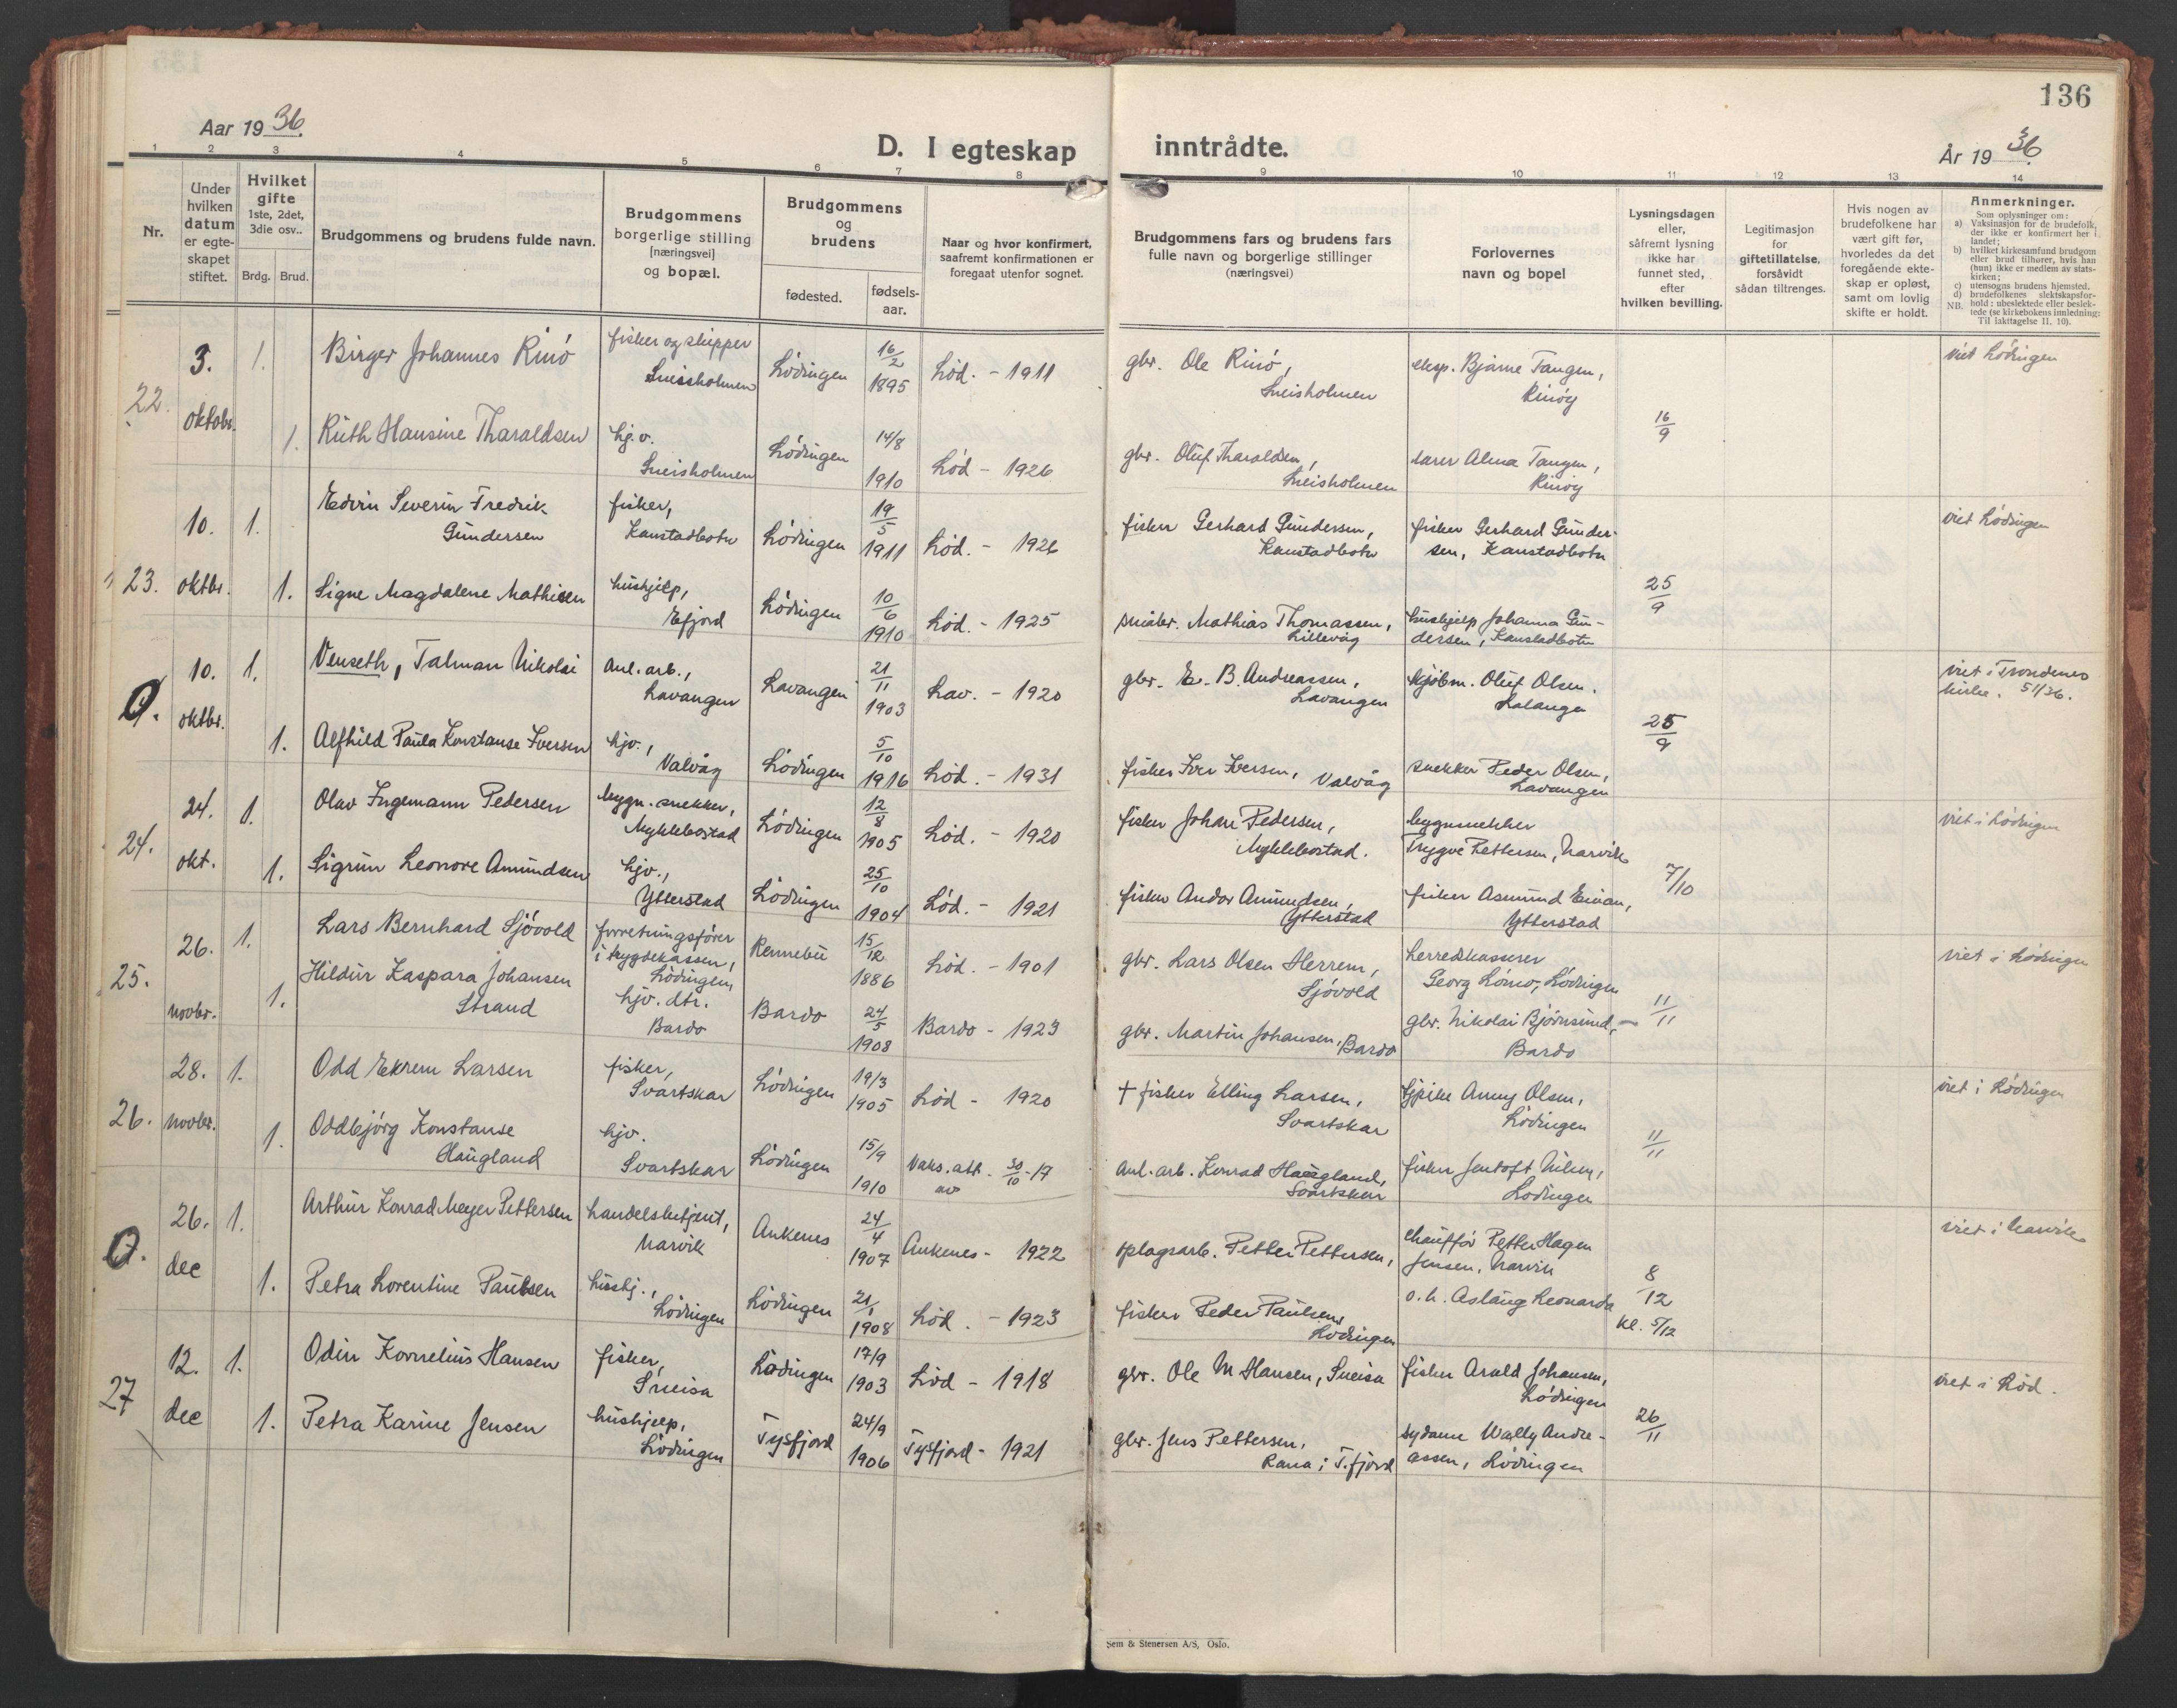 136
Aar 19 36.
D. I egteskap inntrådte.
År 19 36.
1 2 3 4 5 6 7 8 9 10 11 12 13 14
Nr.
Under hvilken datum er egteskapet stiftet.
Hvilket gifte 1ste, 2det, 3die osv..
Brdg. Brud.
Brudgommens og brudens fulde navn.
Brudgommens borgerlige stilling [næringsvei] og bopæl.
Brudgommens og brudens
fødested.
fødsels-aar.
Naar og hvor konfirmert, saafremt konfirmationen er foregaat utenfor sognet.
Brudgommens fars og brudens fars fulle navn og borgerlige stillinger (næringsvei)
Forlovernes navn og bopel
Lysningsdagen eller, såfremt lysning ikke har funnet sted, efter hvilken bevilling.
Legitimasjon for giftetillatelse, forsåvidt sådan tiltrenges.
Hvis nogen av brudefolkene har vært gift før, hvorledes da det foregående ekteskap er opløst, samt om lovlig skifte er holdt.
Anmerkninger.
Som oplysninger om:
a) Vaksinasjon for de brudefolk, der ikke er konfirmert her i landet;
b) hvilket kirkesamfund brudgom eller brud tilhører, hvis han (hun) ikke er medlem av statskirken;
c) utensogns brudens hjemsted.
d) brudefolkenes slektskapsforhold: ubeslektede eller beslektede (se kirkebokens innledning: Til iakttagelse II. 10).
NB.
22. 3. oktobr. 1. Birger Johannes Rinö fisker og skipper Sneisholmen Lödingen 16/2 1895 Löd. - 1911 gbr. Ole Rinö, Sneisholmen eksp. Bjarne Tangen, Rinöy 16/9 viet Lödingen
1. Ruth Hansine Tharaldsen hj.v. Sneisholmen Lödingen 14/8 1910 Löd - 1926 gbr. Oluf Tharaldsen, Sneisholmen Alma Tangen, Rinöy
23. 10. oktbr. 1. Edvin Severin Fredrik Gundersen fisker, Kanstadbotn Lödingen 19/5 1911 Löd. - 1926 fisker Gerhard Gundersen, Kanstadbotn fisker Gerhard Gundersen, Kanstadbotn 25/9 viet Lödingen
1. Signe Magdalene Mathisen hushjelp, Efjord Lödingen 10/6 1910 Löd. - 1925 småbr. Mathias Thomassen, Lillevåg hushjelp Johanna Gundersen, Kanstadbotn
0. 10. oktbr. 1. Venseth, Talman Nikolai Anl. arb., Lavangen Lavangen 21/11 1903 Lav. - 1920 gbr. E. B. Andreassen, Lavangen kjöbm. Oluf Olsen. Salangen 25/9 viet i Trondenes kirke. 51/36.
1. Alfhild Paula Konstanse Iversen hjv., Valvåg Lödingen 5/10 1916 Löd. - 1931 fisker Iver Iversen, Valvåg snekker Peder Olsen, Lavangen
24. 24. okt. 1. Olav Ingemann Pedersen bygn. snekker, Myklebostad Lödingen 12/8 1905 Löd. - 1920 fisker Johan Pedersen, Myklebostad. bygnsnekker Trygve Pettersen, Narvik 7/10 viet i Lödingen
1. Sigrun Leonore Amundsen hjv., Ytterstad Lödingen 25/10 1904 Löd. - 1921 fisker Andor Amundsen, Ytterstad fisker Asmund Ytterstad
25. 26. novbr. 1. Lars Bernhard Sjövold forretningsförer i trygdekassen, Lödingen Rennebu 15/12 1886 Löd. - 1901 gbr. Lars Olsen Herrem, Sjövold herredskasserer Georg Lömo, Lödingen 11/11 viet i Lödingen
1. Hildur Kaspara Johansen Strand hjv. dtr. Bardo Bardo 24/5 1908 Bardo - 1923 gbr. Martin Johansen, Bardo gbr. Nikolai Björnsund, Bardo
26. 28. novbr. 1. Odd Ekrem Larsen fisker, Svartskar Lödingen 19/3 1905 Löd - 1920 † fisker Elling Larsen, Svartskar Anny Olsen, Lödingen 11/11 viet i Lödingen
1. Oddbjörg Konstanse Haugland hjv. Svartskar Lödingen 15/9 1910 Vaks. att. av 30/10-17 anl. arb. Konrad Haugland, Svartskar fisker Jentoft Nilsen, Lödingen
0. 26. dec 1. Arthur Konrad Meyer Pettersen handelsbetjent, Narvik Ankenes 24/4 1907 Ankenes - 1922 oplagsarb. Petter Pettersen, chauffør Petter Hagen Jensen, Narvik 8/12 kl. 5/12 viet i Narvik
1. Petra Lorentine Paulsen hushj., Lödingen Lödingen 21/1 1908 Löd. - 1923 fisker Peder Paulsen, Lödingen o.h. Aslaug Leonarda
27 12. dec 1. Odin Kornelius Hansen fisker, Sneisa Lödingen 17/9 1903 Löd - 1918 gbr. Ole M Hansen, Sneisa fisker Arald Johansen, Lödingen 26/11 viet i Löd.
1. Petra Karine Jensen hushjelp, Lödingen Tysfjord 24/9 1906 Tysfjord - 1921 gbr. Jens Pettersen, Rana i T.fjord sydame Wally Andreassen, Lödingen
Sem & Stenersen A/S, Oslo.